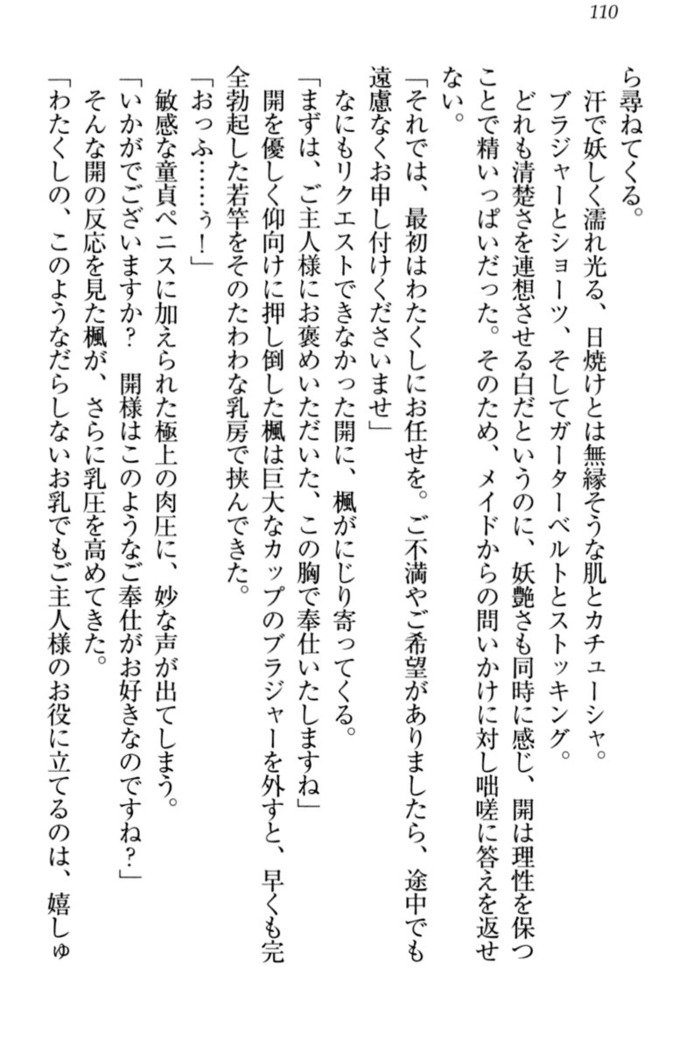 110
ら尋ねてくる。
汗で妖しく濡れ光る、日焼けとは無縁そうな肌とカチューシャ。
ブラジャーとショーツ、そしてガーターベルトとストッキング。
どれも清楚さを連想させる白だというのに、妖艶さも同時に感じ、開は理性を保つ
ことで精いっぱいだった。そのため、メイドからの問いかけに対し咄嗟に答えを返せ
ない。
「それでは、最初はわたくしにお任せを。ご不満やご希望がありましたら、途中でも
遠慮なくお申し付けくださいませ」
なにもリクエストできなかった開に、楓がにじり寄ってくる。
「まずは、ご主人様にお褒めいただいた、この胸で奉仕いたしますね」
開を優しく仰向けに押し倒した楓は巨大なカップのブラジャーを外すと、早くも完
全勃起した若竿をそのたわわな乳房で挟んできた。
「おっふ……ぅ！」
敏感な童貞ペニスに加えられた極上の肉圧に、妙な声が出てしまう。
「いかがでございますか？　開様はこのようなご奉仕がお好きなのですね？」
そんな開の反応を見た楓が、さらに乳圧を高めてきた。
「わたくしの、このようなだらしないお乳でもご主人様のお役に立てるのは、嬉しゅ